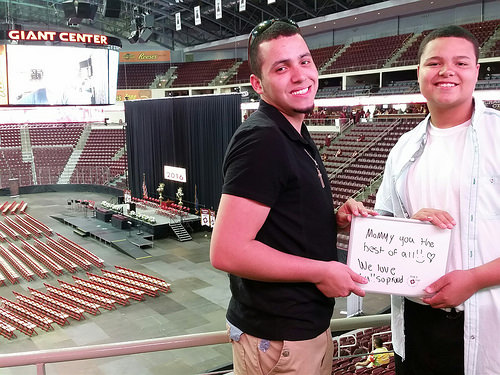 GIANT CENTER
Reese's
2016
Mommy you the
best of all!! ♡
We love
so proud